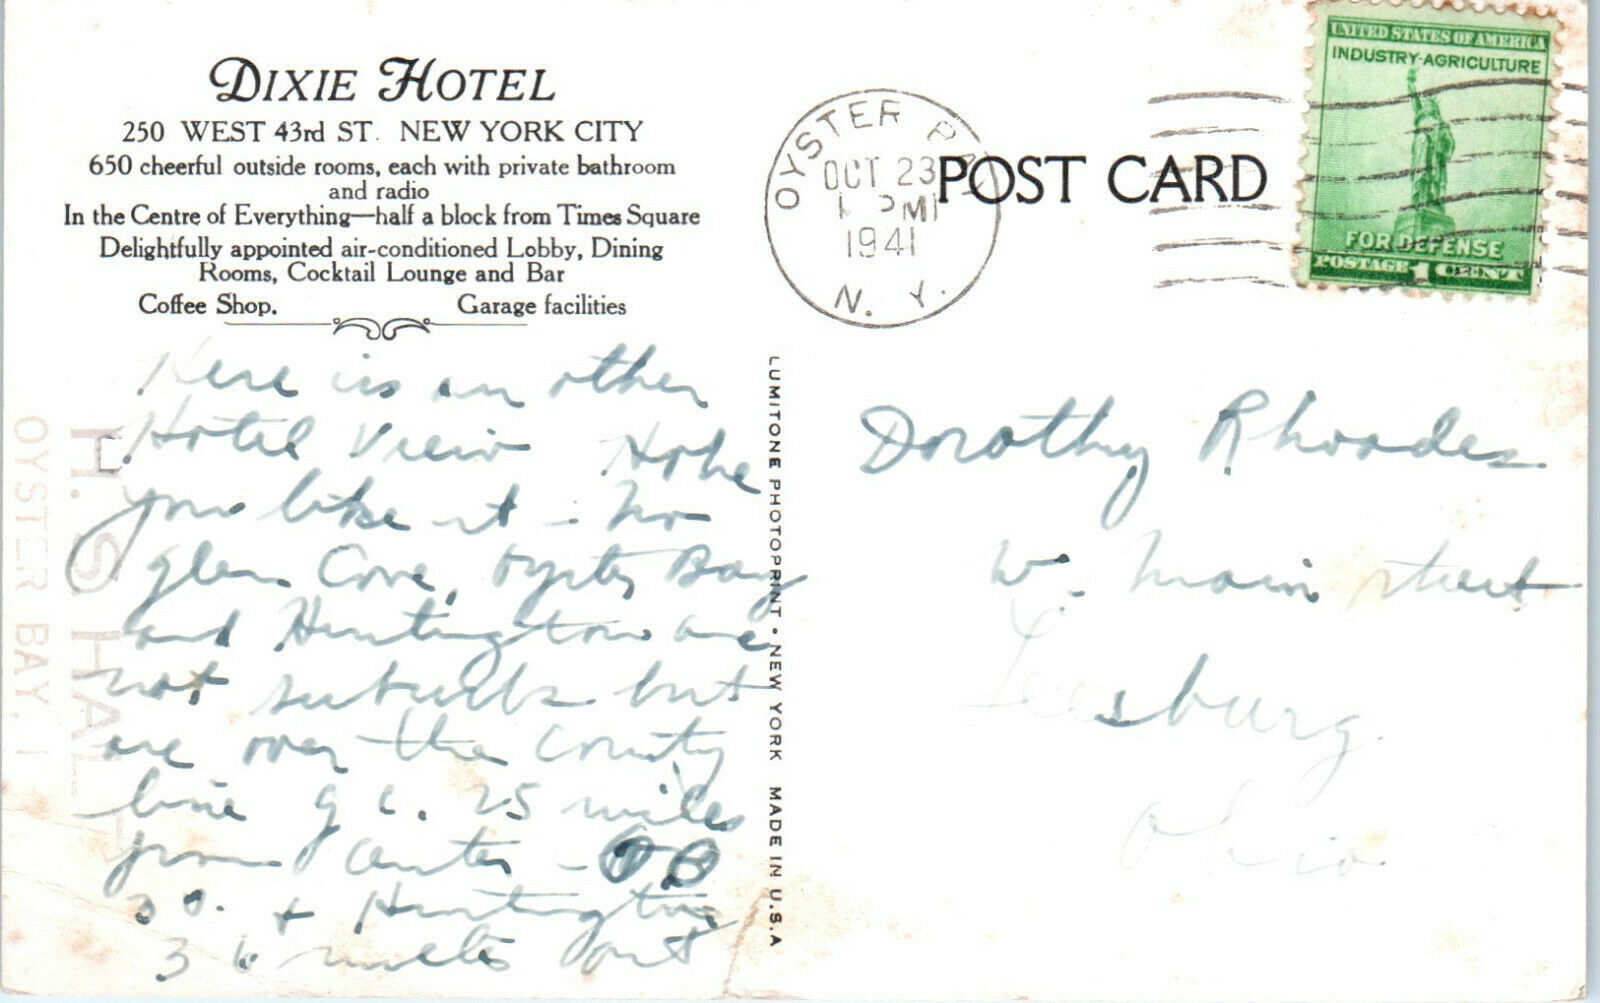 DIXIE HOTEL
250 WEST 43rd ST. NEW YORK CITY
650 cheerful outside rooms, each with private bathroom
and radio
In the Centre of Everything—half a block from Times Square
Delightfully appointed air-conditioned Lobby, Dining
Rooms, Cocktail Lounge and Bar
Coffee Shop. Garage facilities
Here is an other
Hotel View Hohe
you like it - no
Glen Cove, Oyster Bay
and Huntington are
not suburbs but
are over the county
line g c. 25 miles
from center - OB
30. & Huntington
36 miles out
H. S HAL
OYSTER BAY, I
LUMITONE PHOTOPRINT · NEW YORK MADE IN U.S.A
OYSTER BAY
OCT 23
1 PM
1941
N. Y.
POST CARD
UNITED STATES OF AMERICA
INDUSTRY-AGRICULTURE
FOR DEFENSE
POSTAGE 1 CENT
Dorothy Rhoades
W. Main street
Leesburg
Ohio